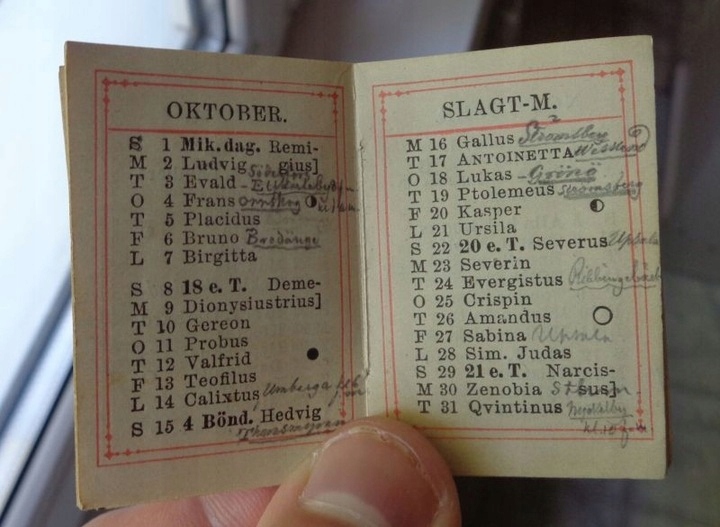 OKTOBER.
S 1 Mik. dag. Remi-
M 2 Ludvig gius]
T 3 Evald
O 4 Frans
T 5 Placidus
F 6 Bruno
L 7 Birgitta
S 8 18 e. T. Deme-
M 9 Dionysius trius]
T 10 Gereon
O 11 Probus
T 12 Valfrid
F 13 Teofilus
L 14 Calixtus
S 15 4 Bönd. Hedvig
SLAGT-M.
M 16 Gallus Strömsberg
T 17 ANTOINETTA Westland
O 18 Lukas - Grönö
T 19 Ptolemeus Strömsberg
F 20 Kasper
L 21 Ursila
S 22 20 e. T. Severus Upsala
M 23 Severin
T 24 Evergistus
O 25 Crispin
T 26 Amandus
F 27 Sabina Upsala
L 28 Sim. Judas
S 29 21 e. T. Narcis-
M 30 Zenobia Sthlm sus]
T 31 Qvintinus